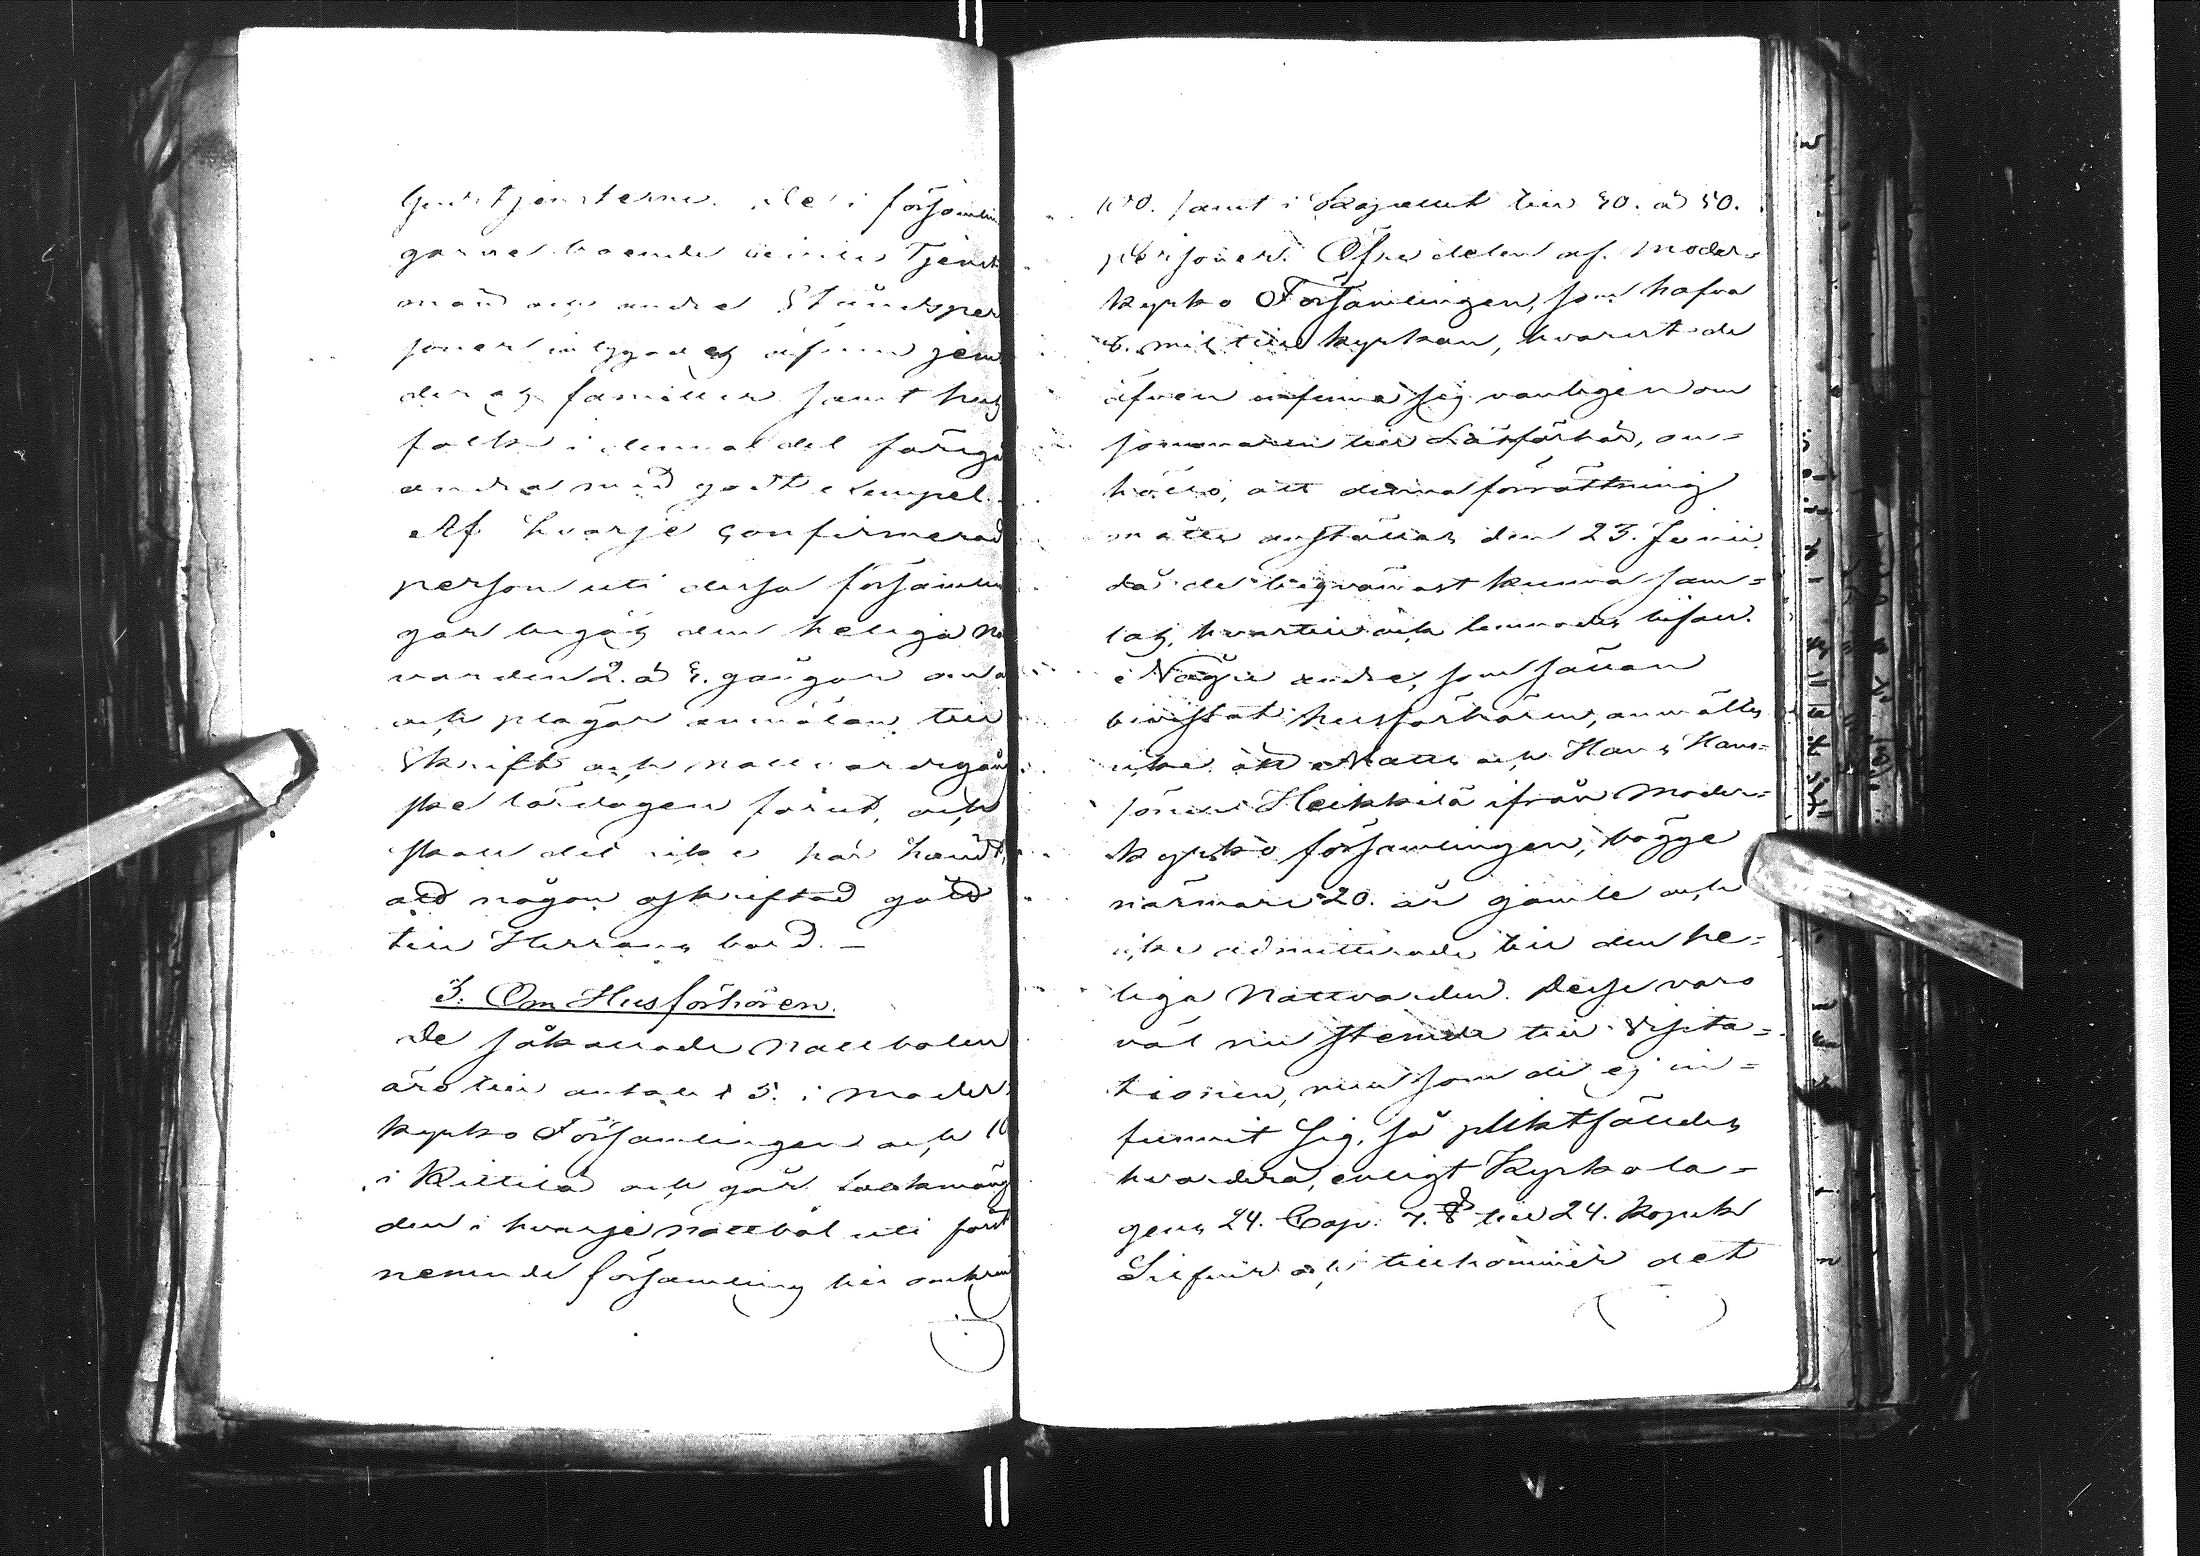 Gudstjensterne. De i försämlin
garne boende
män och andra Ståndsper
soner inbyggas äfven jem
deras familler samt hus
folk i denna del föregå
andra med godt exempel.
Af hvarje confirmerad
person uti dessa försämlin
gar begås den heliga Na
varden 2. à 3. gångor om
och plägar anmälan till
Skrift och nattvardsgång
ske lördagen förut, och
skall det icke här händt,
att någon oskriftad gått
till Herrans bord. —
3. Om Husförhören.
De såkallade Nattbolen
äro till antalet 5. i Moder
kyrko Församlingen och 10
i Kittilä och går folkmäng
den i hvarje nattbol uti först
nemnde församling till omkrin
100. samt i till 40. à 50.
personer. Öfre delen af Moder=
kyrko Församlingen, som hafva
6. mil till kyrkan, hvarest de
äfven infinna sig vanligen om
sommaren till Läsförhör, an=
höllo, att denna förrättning
måtte anställas den 23. Junii
då de beqvämast kunna sam=
las, hvartill och lemnades bifall.
Någre andre, som sällan
bevistat husförhören, anmältes
icke än Matts och Hans Hans=
söner Heikkilä ifrån Moder=
kyrko församlingen, bägge
närmare 20. år gamle och
icke admitterade till den he=
liga Nattvarden. Desse voro
väl nu stemde till Visita=
tionen, men som de ej in=
funnit sig, så pliktfäldes
hvardera, enligt Kyrkola=
gens 24. Cap. 7. § till 24. Kopek
Silfver och tillkommer det